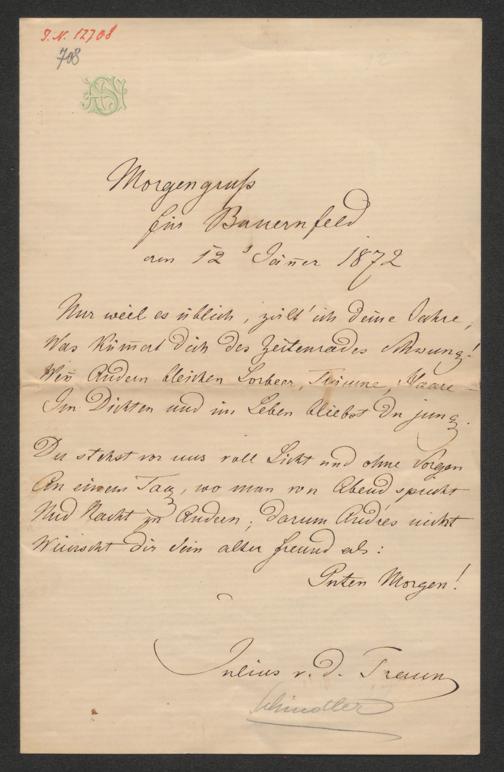 I. N. 12708
708
Morgengruß
für Bauernfeld
am 12ᵗ Jäner 1872
Nur weil es üblich, zält' ich deine Jahre,
Was kümert dich des Zeitenrades Schwung!
Wen Andern bleichen Lorbeer, Stimme, Haare –
Im Dichten und im Leben bliebst Du jung.
Du stehst vor uns voll Licht und ohne Sorgen
An einem Tag, wo man von Abend spricht
Und Nacht zu Andern; darum Andres nicht
Wünscht dir dein alter Freund als:
Guten Morgen!
Julius v. d. Traun
Schindler